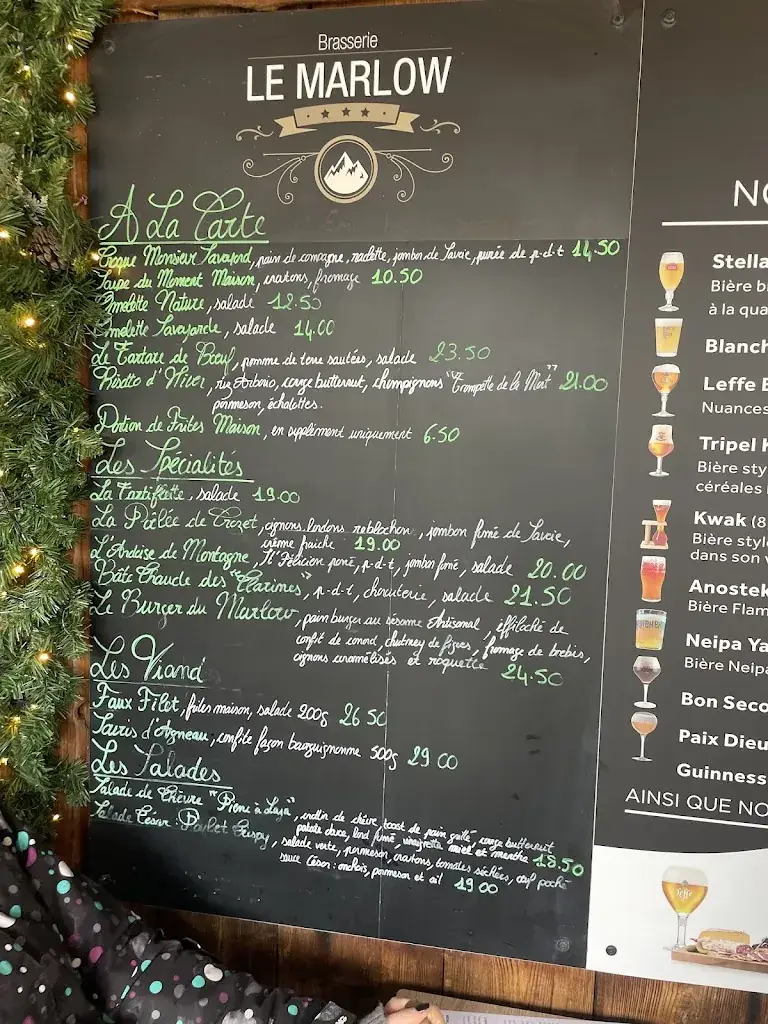 Brasserie
LE MARLOW
A La Carte
Croque Monsieur Savoyard, pain de campagne, raclette, jambon de Savoie, purée de p-d-t 14,50
Soupe du Moment Maison, croutons, fromage 10.50
Omelette Nature, salade 12.50
Omelette Savoyarde, salade 14.00
Le Tartare de Bœuf, pomme de terre sautées, salade 23.50
Risotto d'Hiver, riz Arborio, courge butternut, champignons "Trompette de la Mort" 21.00
parmesan, échalottes.
Portion de Frites Maison, en supplément uniquement 6.50
Les Spécialités
La Tartiflette, salade 19.00
La Poêlée de Crozet, oignons, lardons, reblochons, jambon fumé de Savoie,
crème fraiche 19.00
L'Ardoise de Montagne, St Félicien pané, p-d-t, jambon fumé, salade 20.00
Bâte Chaude des "Clarines", p-d-t, charcuterie, salade 21.50
Le Burger du Marlow, pain burger au sésame Artisanal, effiloché de
confit de canard, chutney de figues, fromage de brebis,
oignons caramélisés et roquette 24.50
Les Viand
Faux Filet, frites maison, salade 200g 26 50
Souris d'Agneau, confite façon bourguignonne 500g 29 00
Les Salades
Salade de Chèvre "Pierre à Laya", crottin de chèvre, toast de pain grillé, courge butternut
patate douce, lard fumé, vinaigrette miel et menthe 18.50
Salade César: Poulet Crispy, salade verte, parmesan, croutons, tomates séchées, œuf poché
sauce César: anchois, parmesan et ail 19 00
NO
Stella
Bière b
à la qua
Blanch
Leffe B
Nuances
Tripel K
Bière sty
céréales
Kwak (8
Bière style
dans son v
Anostek
Bière Flam
Neipa Ya
Bière Neipa
Bon Seco
Paix Dieu
Guinness
AINSI QUE NO
Leffe